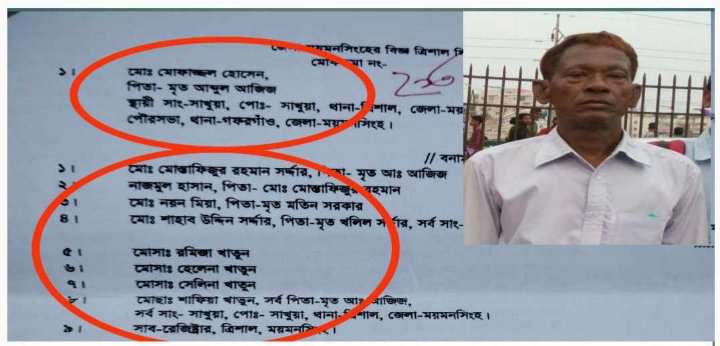 জেলা-ময়মনসিংহের বিজ্ঞ ত্রিশাল সি
মোকদ্দমা নং-
১। মোঃ মোফাজ্জল হোসেন,
পিতা- মৃত আব্দুল আজিজ
স্থায়ী সাং-সাখুয়া, পোঃ- সাখুয়া, থানা-ত্রিশাল, জেলা-ময়
পৌরসভা, থানা-গফরগাঁও, জেলা-ময়মনসিংহ।
// বনাম
১। মোঃ মোস্তাফিজুর রহমান সর্দ্দার, পিতা- মৃত আঃ আজিজ
২। নাজমুল হাসান, পিতা- মোঃ মোস্তাফিজুর রহমান
৩। মোঃ নয়ন মিয়া, পিতা-মৃত মতিন সরকার
৪। মোঃ শাহাব উদ্দিন সর্দ্দার, পিতা-মৃত খলিল সর্দ্দার, সর্ব সাং-
৫। মোসাঃ রমিজা খাতুন
৬। মোসাঃ হেলেনা খাতুন
৭। মোসাঃ সেলিনা খাতুন
৮। মোছাঃ শাফিয়া খাতুন, সর্ব পিতা-মৃত আঃ আজিজ,
সর্ব সাং- সাখুয়া, পোঃ- সাখুয়া, থানা-ত্রিশাল, জেলা-ময়মনসিংহ।
৯। সাব-রেজিষ্ট্রার, ত্রিশাল, ময়মনসিংহ।